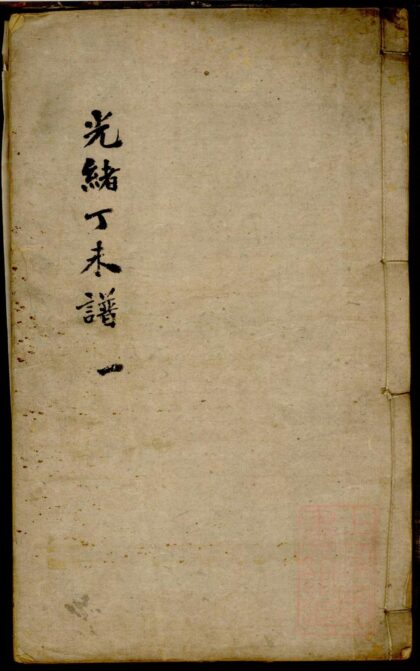 光緒丁未譜 一